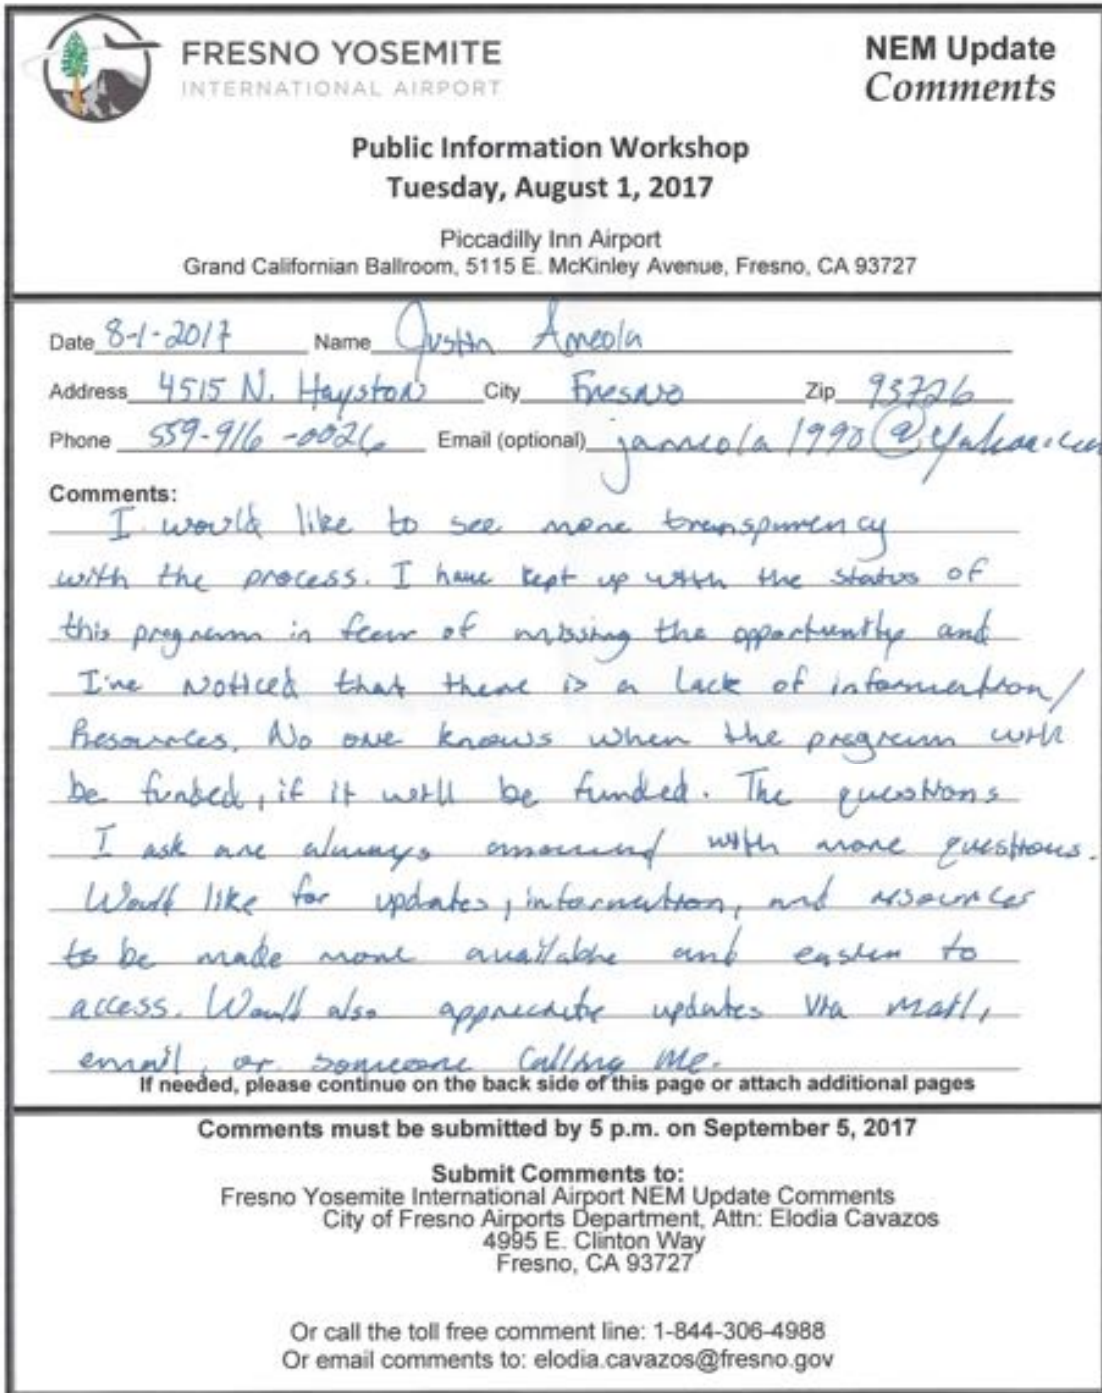 FRESNO YOSEMITE
INTERNATIONAL AIRPORT
NEM Update
Comments
Public Information Workshop
Tuesday, August 1, 2017
Piccadilly Inn Airport
Grand Californian Ballroom, 5115 E. McKinley Avenue, Fresno, CA 93727
Date 8-1-2017 Name Justin Ameola
Address 4515 N. Hayston City Fresno Zip 93726
Phone 559-916-0026 Email (optional) jameola1990@yahoo.com
Comments:
I would like to see more transparency
with the process. I have kept up with the status of
this program in fear of missing the opportunity and
I've noticed that there is a lack of information/
Resources. No one knows when the program will
be funded, if it will be funded. The questions
I ask are always with more questions.
Would like for updates, information, and resources
to be made more available and easier to
access. Would also appreciate updates via mail,
email, or someone calling me.
If needed, please continue on the back side of this page or attach additional pages
Comments must be submitted by 5 p.m. on September 5, 2017
Submit Comments to:
Fresno Yosemite International Airport NEM Update Comments
City of Fresno Airports Department, Attn: Elodia Cavazos
4995 E. Clinton Way
Fresno, CA 93727
Or call the toll free comment line: 1-844-306-4988
Or email comments to: elodia.cavazos@fresno.gov